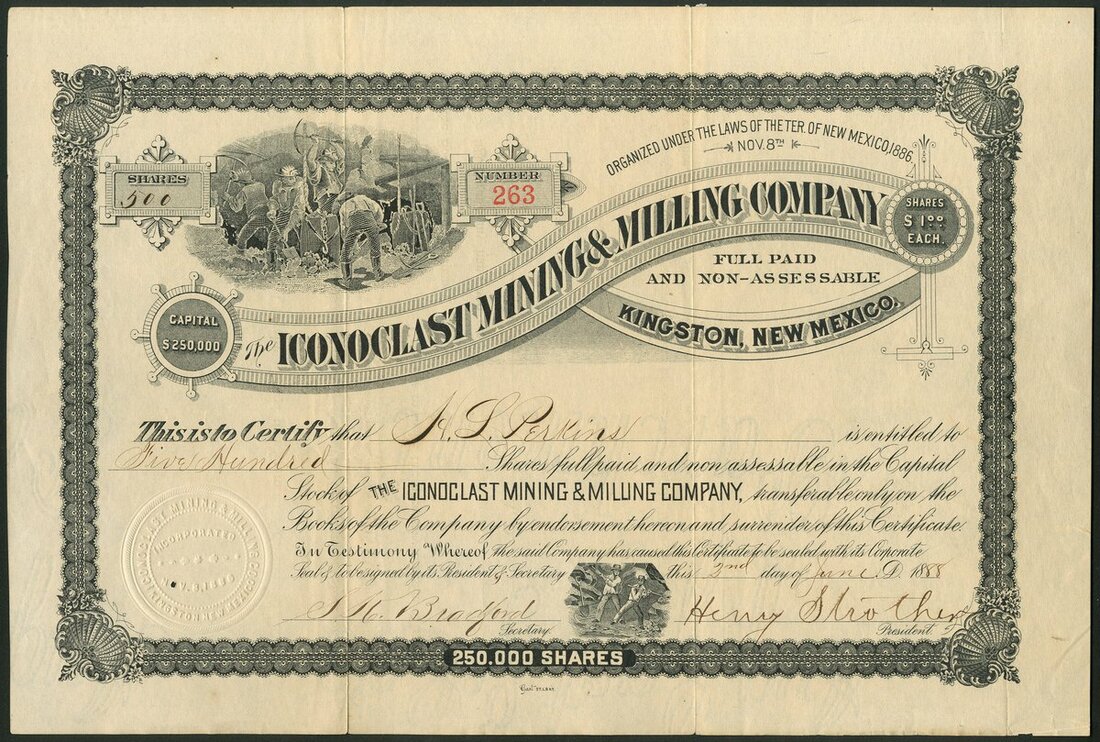 ORGANIZED UNDER THE LAWS OF THE TER. OF NEW MEXICO, 1886.
NOV. 8TH
SHARES
500
NUMBER
263
SHARES
$1.00
EACH.
CAPITAL
$250,000
The ICONOCLAST MINING & MILLING COMPANY
FULL PAID
AND NON-ASSESSABLE
KINGSTON, NEW MEXICO.
This is to Certify that H. L. Perkins is entitled to
Five Hundred Shares full paid and non assessable in the Capital
Stock of THE ICONOCLAST MINING & MILLING COMPANY, transferable only on the
Books of the Company by endorsement hereon and surrender of this Certificate.
In Testimony Whereof the said Company has caused this Certificate to be sealed with its Corporate
Seal & to be signed by its President & Secretary this 2nd day of June D. 1888
Henry Strother
Secretary.
President.
ICONOCLAST MINING & MILLING
INCORPORATED
250.000 SHARES